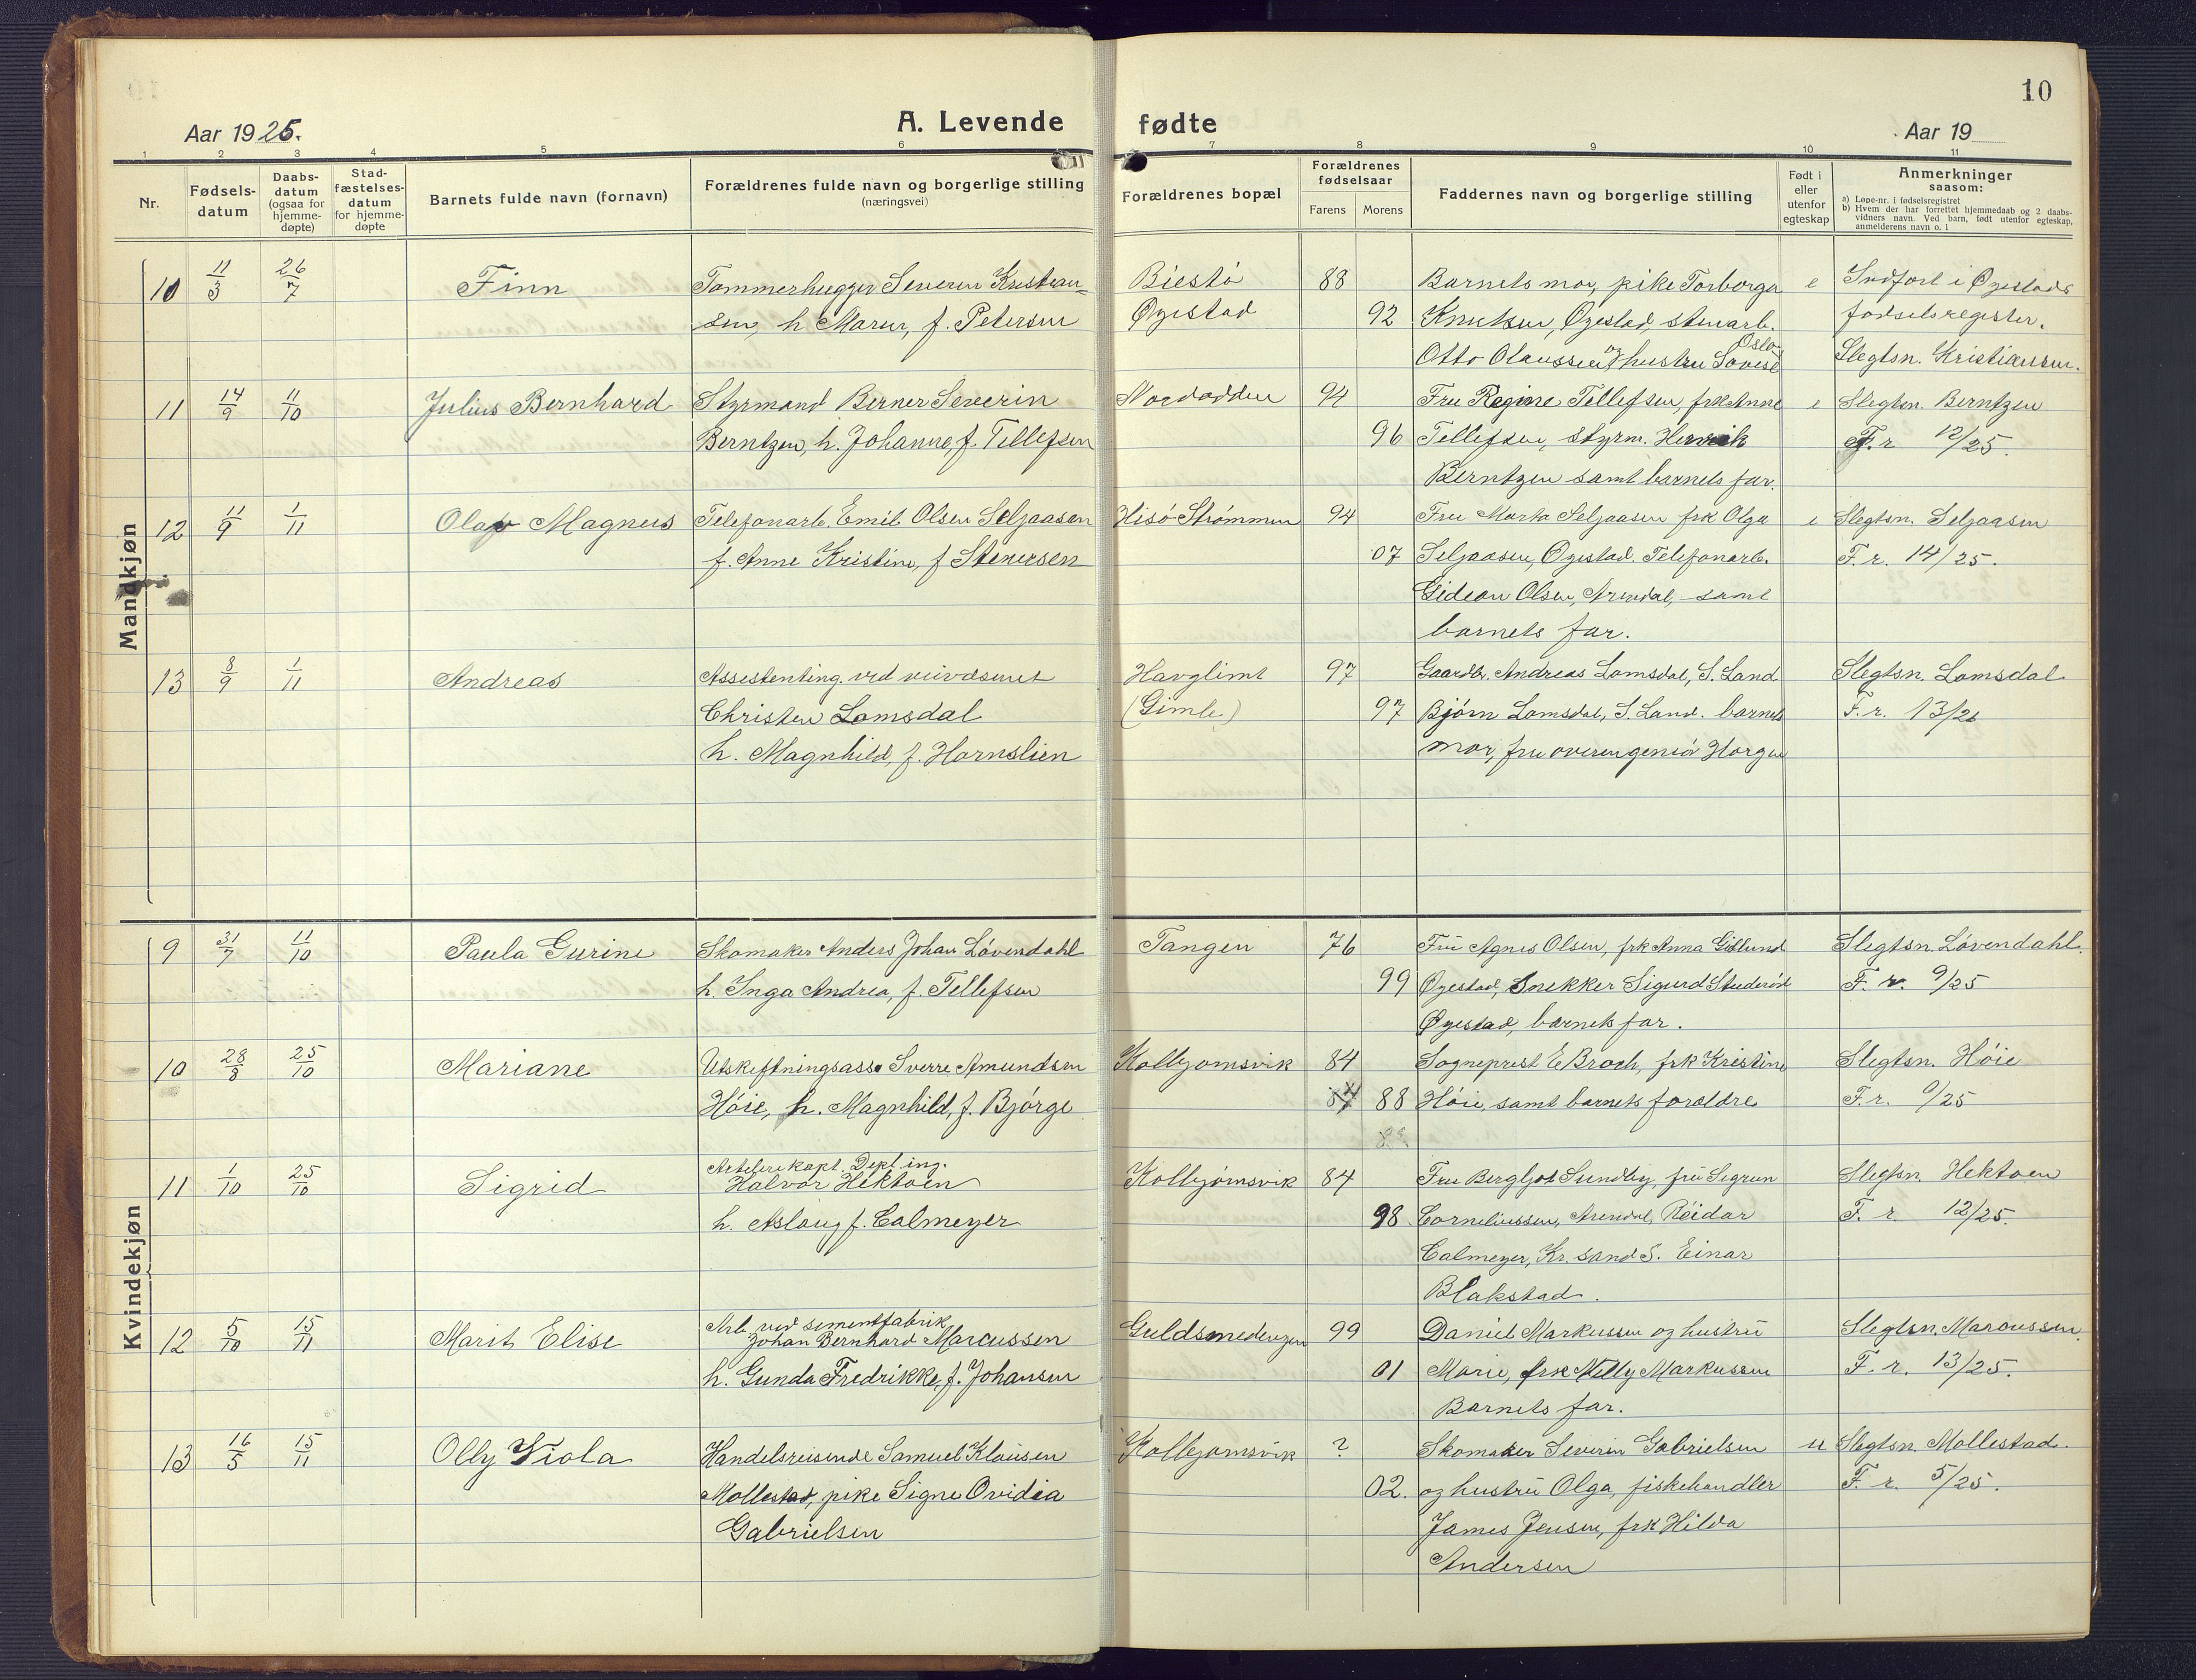 10
Aar 1925.
A. Levende
fødte
Aar 19
1 2 3 4 5 6 7 8 9 10 11
Nr.
Fødsels-
datum
Daabs-
datum
(ogsaa for
hjemme-
døpte)
Stad-
fæstelses-
datum
for hjemme-
døpte
Barnets fulde navn (fornavn)
Forældrenes fulde navn og borgerlige stilling
(næringsvei)
Forældrenes bopæl
Forældrenes
fødselsaar
Farens
Morens
Faddernes navn og borgerlige stilling
Født i
eller
utenfor
egteskap
Anmerkninger
saasom:
a) Løpe-nr. i fødselsregistret
b) Hvem der har forrettet hjemmedaab og 2 daabs-
vidners navn. Ved barn, født utenfor egteskap,
anmelderens navn o. l
Mandkjøn
10 11/3 26/7 Finn Tømmerhugger Severin Kristian- 88 Barnets mor, pike Torborga e Indført i Øyestads
sen, h Maren, f. Petersen Øyestad 92 Knutsen, Øyestad, stenarb. fødselsregister.
Oslo
Otto Olaussen og hustru Lovise Slegtsn. Kristiansen.
11 14/9 11/10 Julius Bernhard Styrmand Berner Severin 94 Fru Regine Tellefsen, frk Anne e Slegtsn. Berntzen
Berntzen, h. Johanne, f. Tellefsen 96 Tellefsen, styrm. Henrik F. r 12/25.
Berntzen samt barnets far.
12 11/9 1/11 Olav Magnus Telefonarb. Emil Olsen Seljaasen Hisø Strømmen 94 Fru Marta Seljaasen frk Olga e Slegtsn. Seljaasen
f. Anne Kristine, f Stenersen 07 Seljaasen, Øyestad. Telefonarb. F. r. 14/25.
Gideon Olsen, Arendal, samt
barnets far.
13 8/9 1/11 Andreas Assestenting. ved veivæsenet Havglimt 97 Gaardbr. Andreas Lomsdal, S. Land Slegtsn. Lomsdal
Christen Lomsdal (Gimle) 97 Bjørn Lomsdal, S. Land. barnets F. r. 13/25
h. Magnhild, f. Hornslien mor, fru overingeniør Horgen
Kvindekjøn
9 31/7 11/10 Paula Gurine Skomaker Anders Johan Løvendahl Tangen 76 Fru Agnes Olsen, frk Anna Slegtsn. Løvendahl.
h. Inga Andrea, f. Tellefsen 99 Øyestad, Snekker Sigurd F. r. 9/25
Øyestad, barnets far.
10 28/8 25/10 Mariane Utskiftningsass. Sverre Amundsen Kolbjørnsvik 84 Sogneprest E Broch, frk Kristine Slegtsn. Høie
Høie, h. Magnhild, f. Bjørge 88 Høie, samt barnets foreldre F. r. 9/25
11 1/10 25/10 Sigrid Artillerikapt. Depl. ing.
Halvor Hektoen Kolbjørnsvik 84 Fru Bergljot Sundby, fru Sigrun Slegtsn. Hektoen
h. Aslaug f. Calmeyer 98 Corneliussen, Arendal, Reidar F. r. 12/25.
Calmeyer, Kr. sand S. Einar
Blakstad.
12 5/10 15/11 Marit Elise Arb. ved sementfabrik
Johan Bernhard Marcussen Guldsmedengen 99 Daniel Markussen og hustru Slegtsn. Marcussen.
h. Gunda Fredrikke, f. Johansen 01 Marie, frk Nelly Markussen F. r. 13/25.
Barnets far.
13 16/5 15/11 Olly Viola Handelsreisende Samuel Klausen Kolbjørnsvik ? Skomaker Severin Gabrielsen u Slegtsn. Mollestad.
Mollestad, pike Signe Ovidia 02. og hustru Olga, fiskehandler F. r. 5/25.
Gabrielsen James Jensen, frk Hilda
Andersen